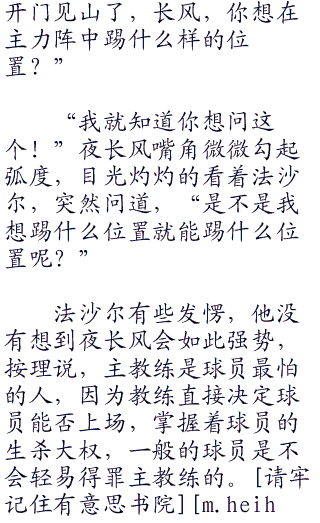 开门见山了，长风，你想在
主力阵中踢什么样的位
置？”
“我就知道你想问这
个！”夜长风嘴角微微勾起
弧度，目光灼灼的看着法沙
尔，突然问道，“是不是我
想踢什么位置就能踢什么位
置呢？”
法沙尔有些发愣，他没
有想到夜长风会如此强势，
按理说，主教练是球员最怕
的人，因为教练直接决定球
员能否上场，掌握着球员的
生杀大权，一般的球员是不
会轻易得罪主教练的。[请牢
记住有意思书院][m.heih